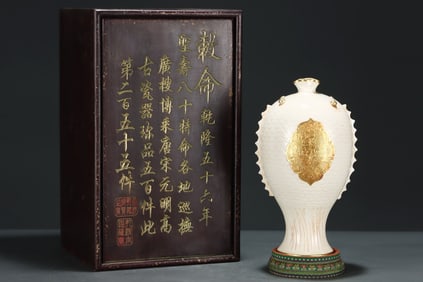 敕命 乾隆五十六年
聖壽八十特命各地巡撫
廣搜博采唐宋元明高
古瓷器珍品五百件此
第二百五十五件